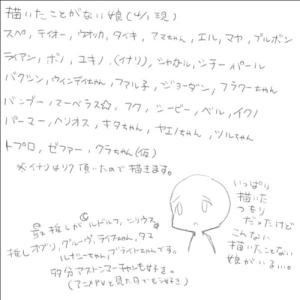 描いたことがない娘(4/1現)
スペ, テイオー, ウオッカ, タイキ, アマちゃん, エル, マヤ, ブルボン
ライアン, ボノ, ユキノ, (イナリ), シャカール, シチー, パール
バクシン, ウィンディちゃん, ファル子, ジョーダン, フラワーちゃん
バンブー, マーベラス☆, フク, シービー, ベル, イクノ
パーマー, ヘリオス, キタちゃん, ヤエノちゃん, ツルちゃん
トプロ, ゼファー, クラちゃん(仮)
※イナリはリク頂いたので描きます。
最推しがルドルフ, シリウス
推しオグリ, グルーヴ, ライアちゃん, タマ
ルナシーちゃん, ブライトちゃんです。
多分アストンマーチャンも好き。
(アニメPVと見た目でもう好き)
いっぱい
描いた
つもり
だったけど
こんない
描いたことない
娘がいるい…。